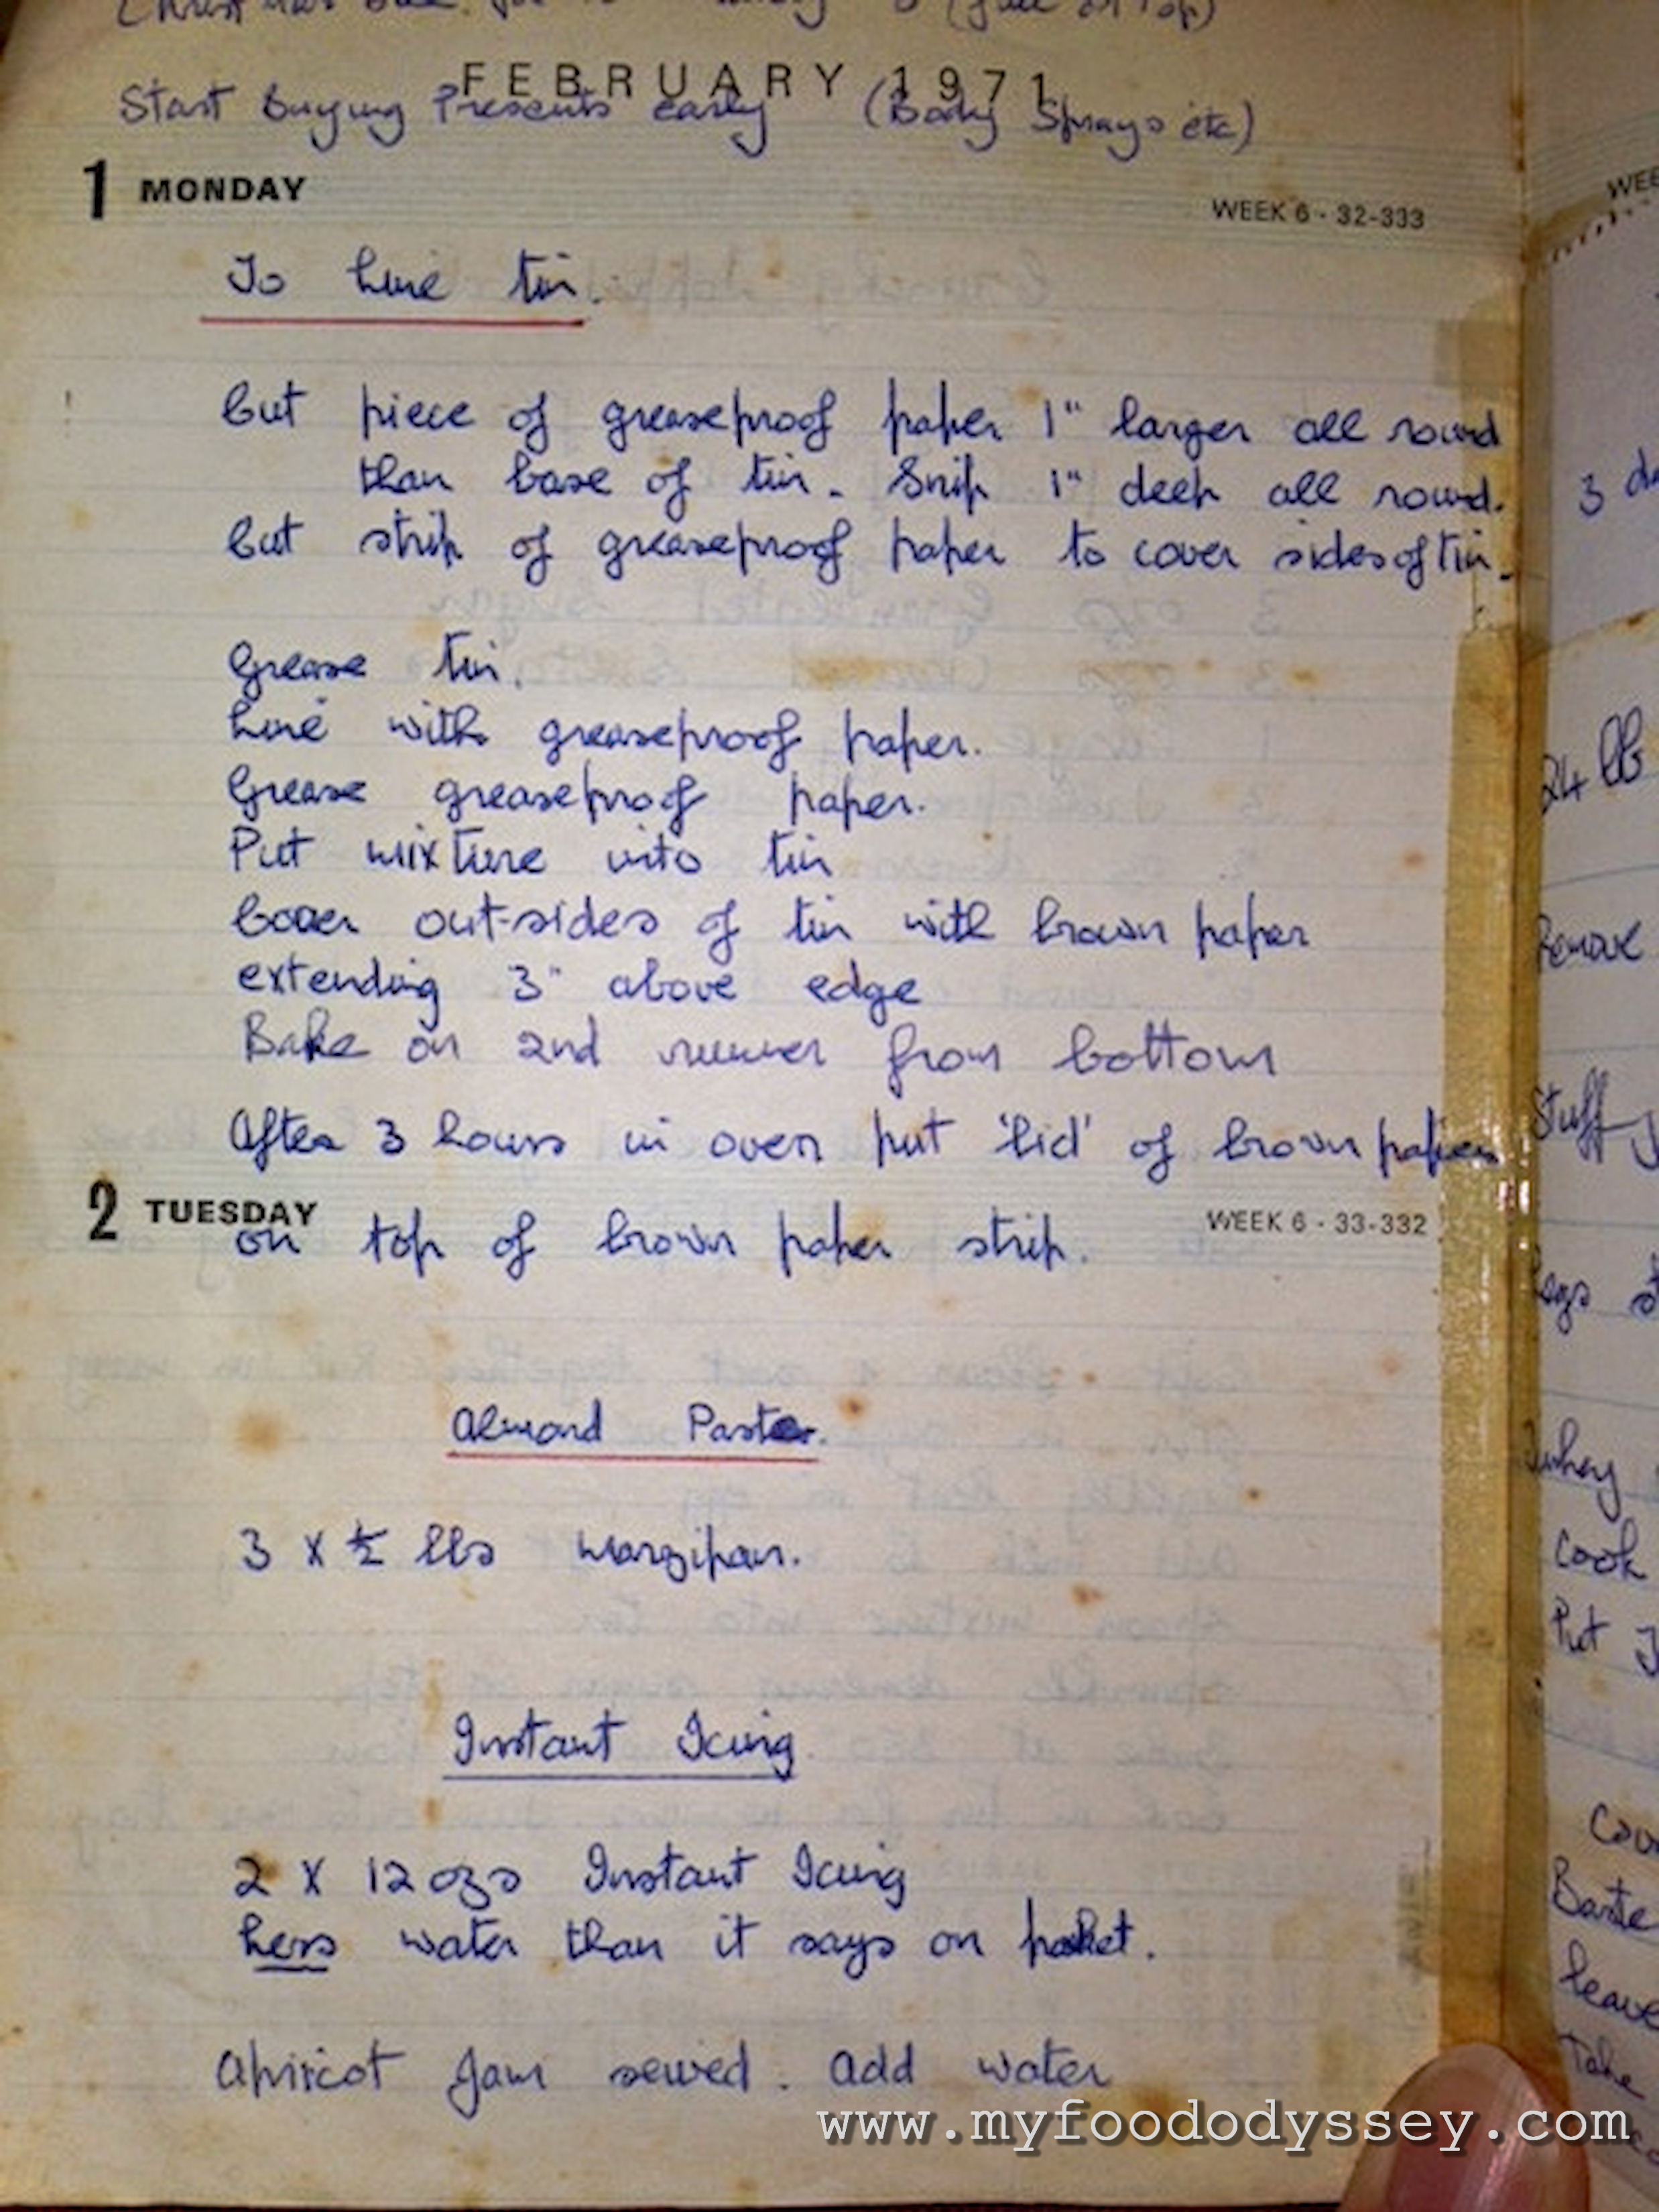 FEBRUARY 1971
Start Buying Presents early (Body Sprays etc)
1 MONDAY WEEK 6 - 32-333
To Line tin.
Cut piece of greaseproof paper 1" larger all round
than base of tin. Snip 1" deep all round.
Cut strip of greaseproof paper to cover sides of tin.
Grease tin.
Line with greaseproof paper.
Grease greaseproof paper.
Put mixture into tin
Cover out-sides of tin with brown paper
extending 3" above edge
Bake on 2nd runner from bottom
After 3 hours in oven put 'lid' of brown paper
2 TUESDAY WEEK 6 - 33-332
on top of brown paper strip.
Almond Paste.
3 x ½ lbs Marzipan.
Instant Icing
2 x 12 ozs Instant Icing
Less water than it says on packet.
Apricot Jam seived. Add water
www.myfoododyssey.com
3
24 lb
Remove
Stuff
Legs
Turkey
Cook
Put
Baste
Leave
Take